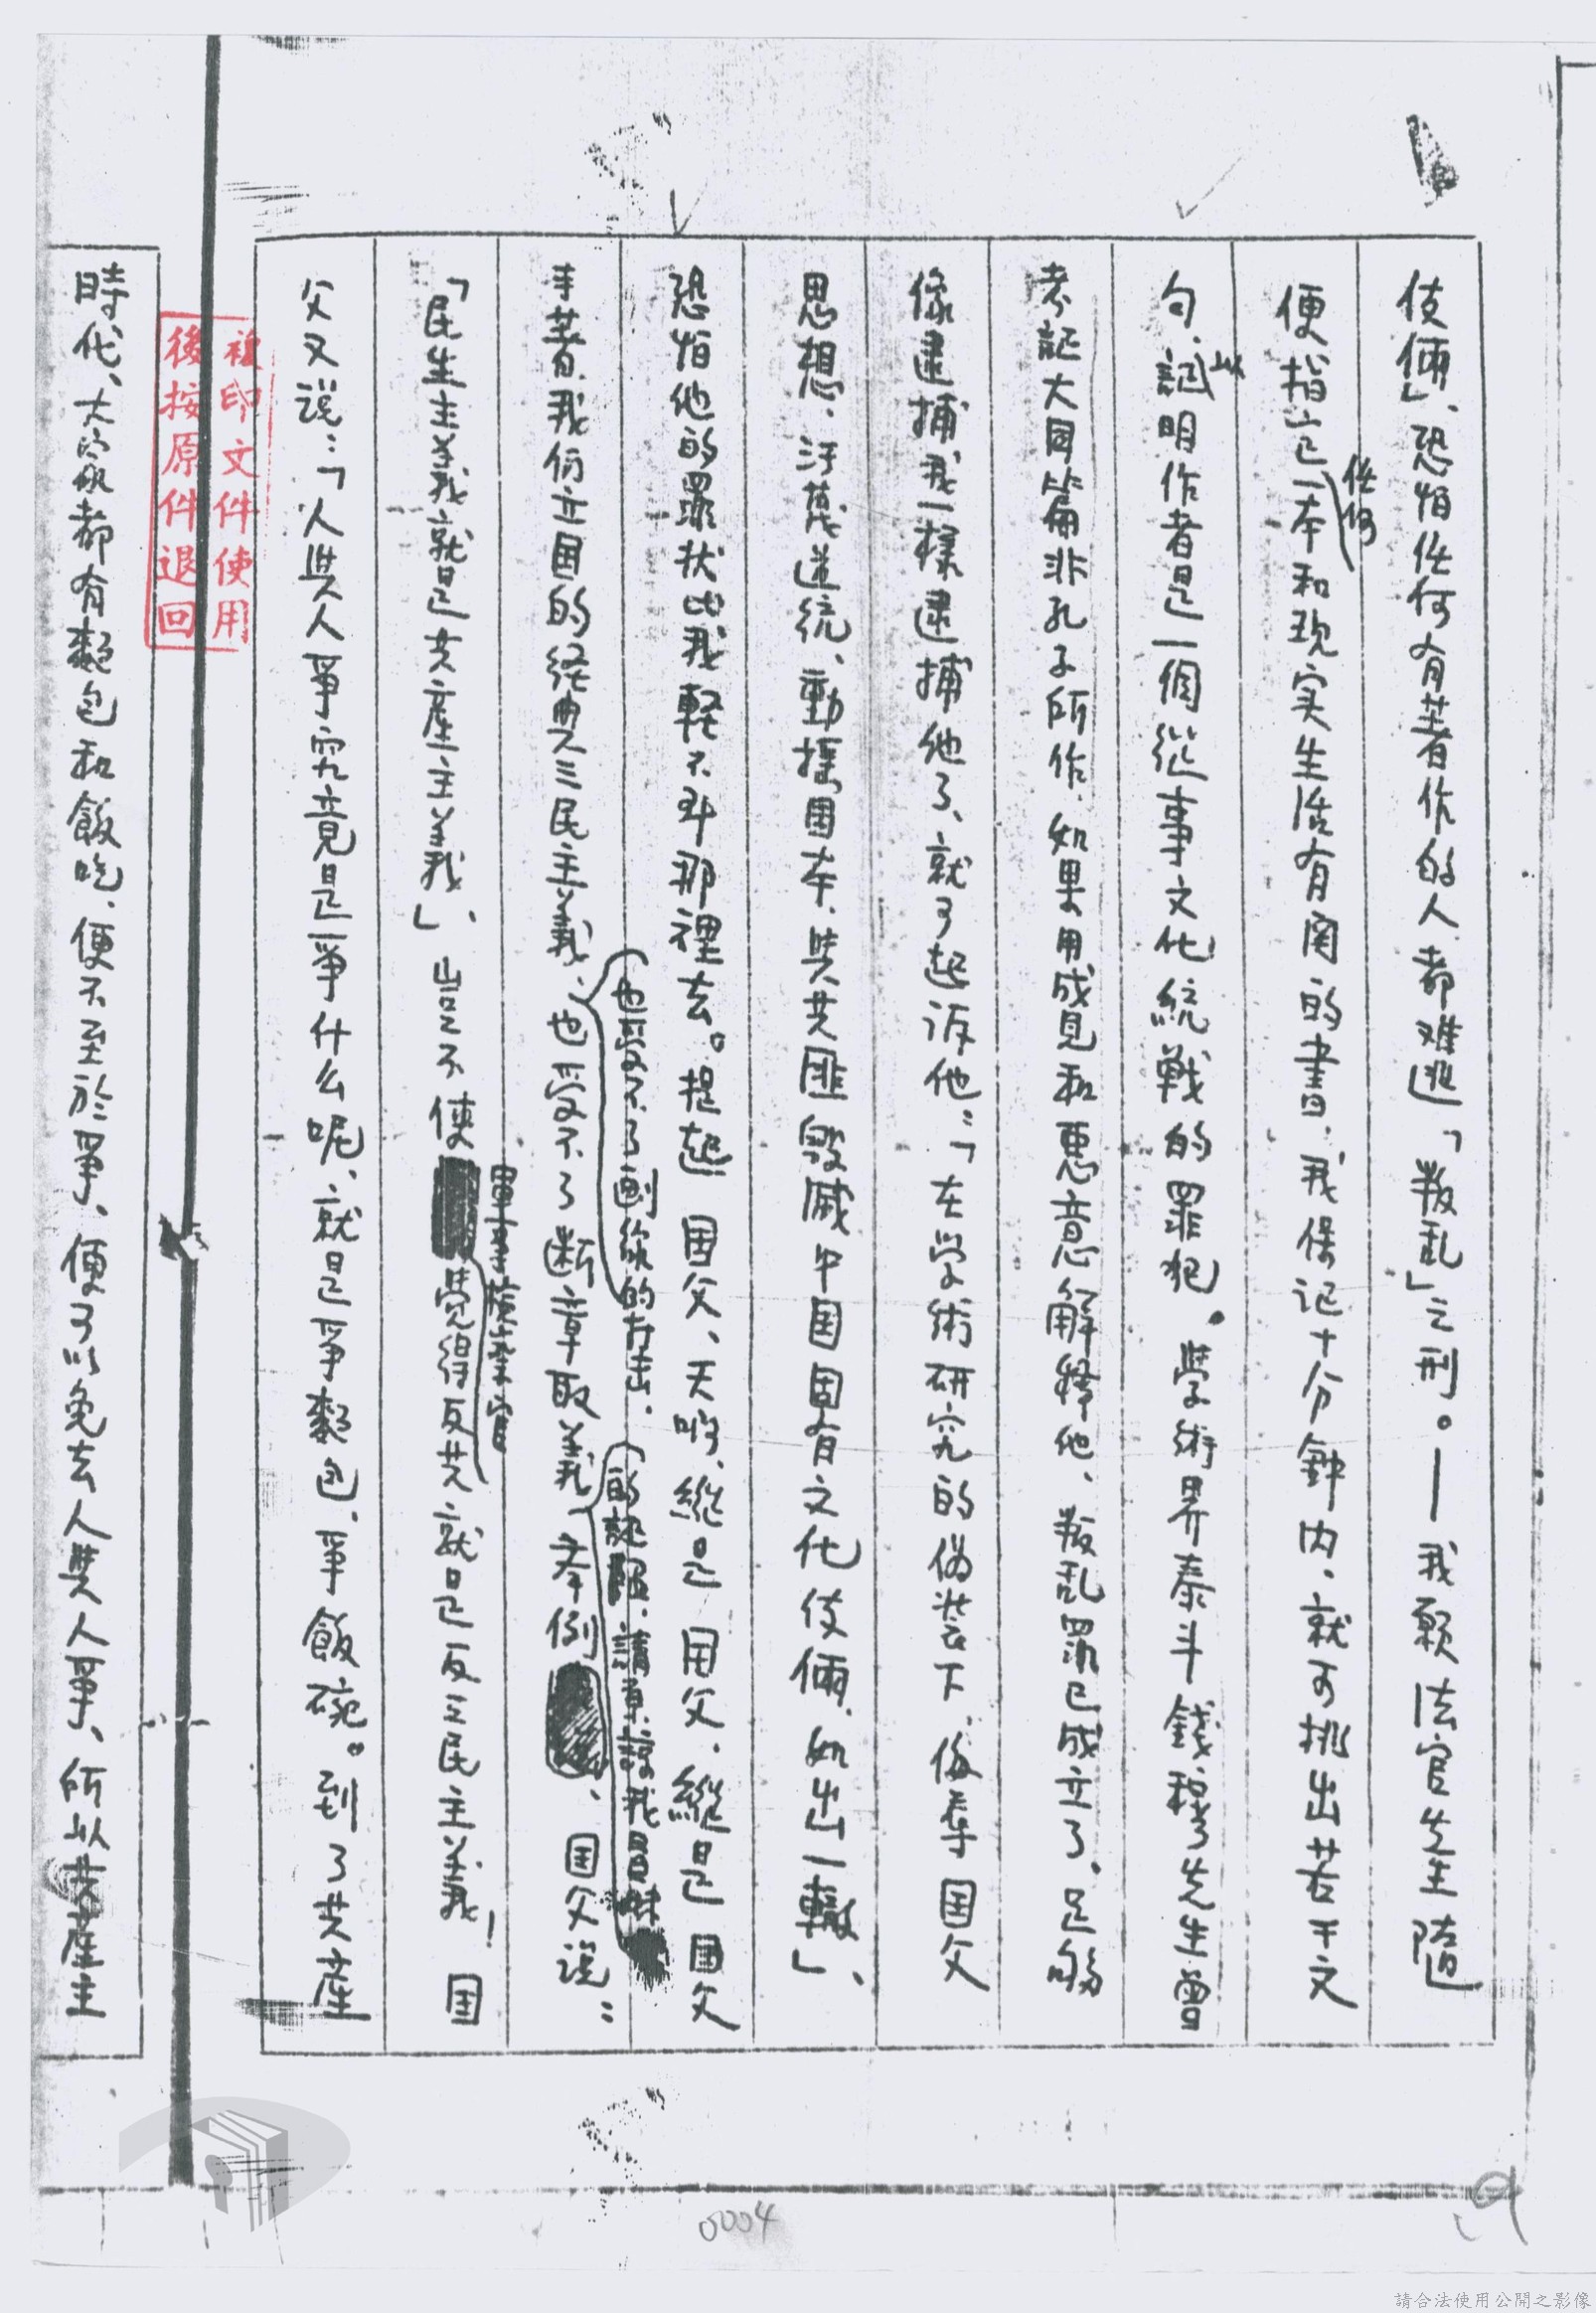 伎倆」、恐怕任何有著作的人都难逃「叛乱」之刑。——我願法官先生隨
便指定一本和現实生活有関的書、我保証十分鈡内、就可挑出若干文
任何
句、証明作者是一個從事文化統戰的罪犯。學術界泰斗錢穆先生曾
以
考証大同篇非孔子所作、如果用成見和惡意解釋他、叛乱罪已成立了、足夠
像逮捕我一樣逮捕他了、就可起訴他:「在学術研究的偽裝下、侮辱国父
思想、汙蔑道統、動搖国本、與共匪毀滅中国固有文化伎倆、如出一轍」、
恐怕他的罪状比我輕不到那裡去。提起 国父、天啊、縱是 国父、縱是 国父
也受不了劃線的打击、
請原諒我冒昧
手著、我们立国的経典三民主義、也受不了断章取義、舉例、国父说:
「民生主義就是共産主義」、豈不使覺得反共就是反三民主義! 国
軍事檢察官
父又説:「人與人爭究竟是爭什么呢、就是爭麵包、爭飯碗。到了共産
時代、大家都有麵包和飯吃、便不至於爭、便可以免去人與人爭、所以共産主
複印文件使用
後按原件退回
0004
請合法使用公開之影像